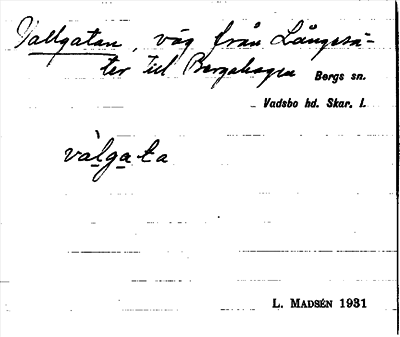 Vallgatan, väg från Långesä-
ter till Bergahagen Bergs sn.
Vadsbo hd. Skar. l.
vàlgata
L. MADSÉN 1931